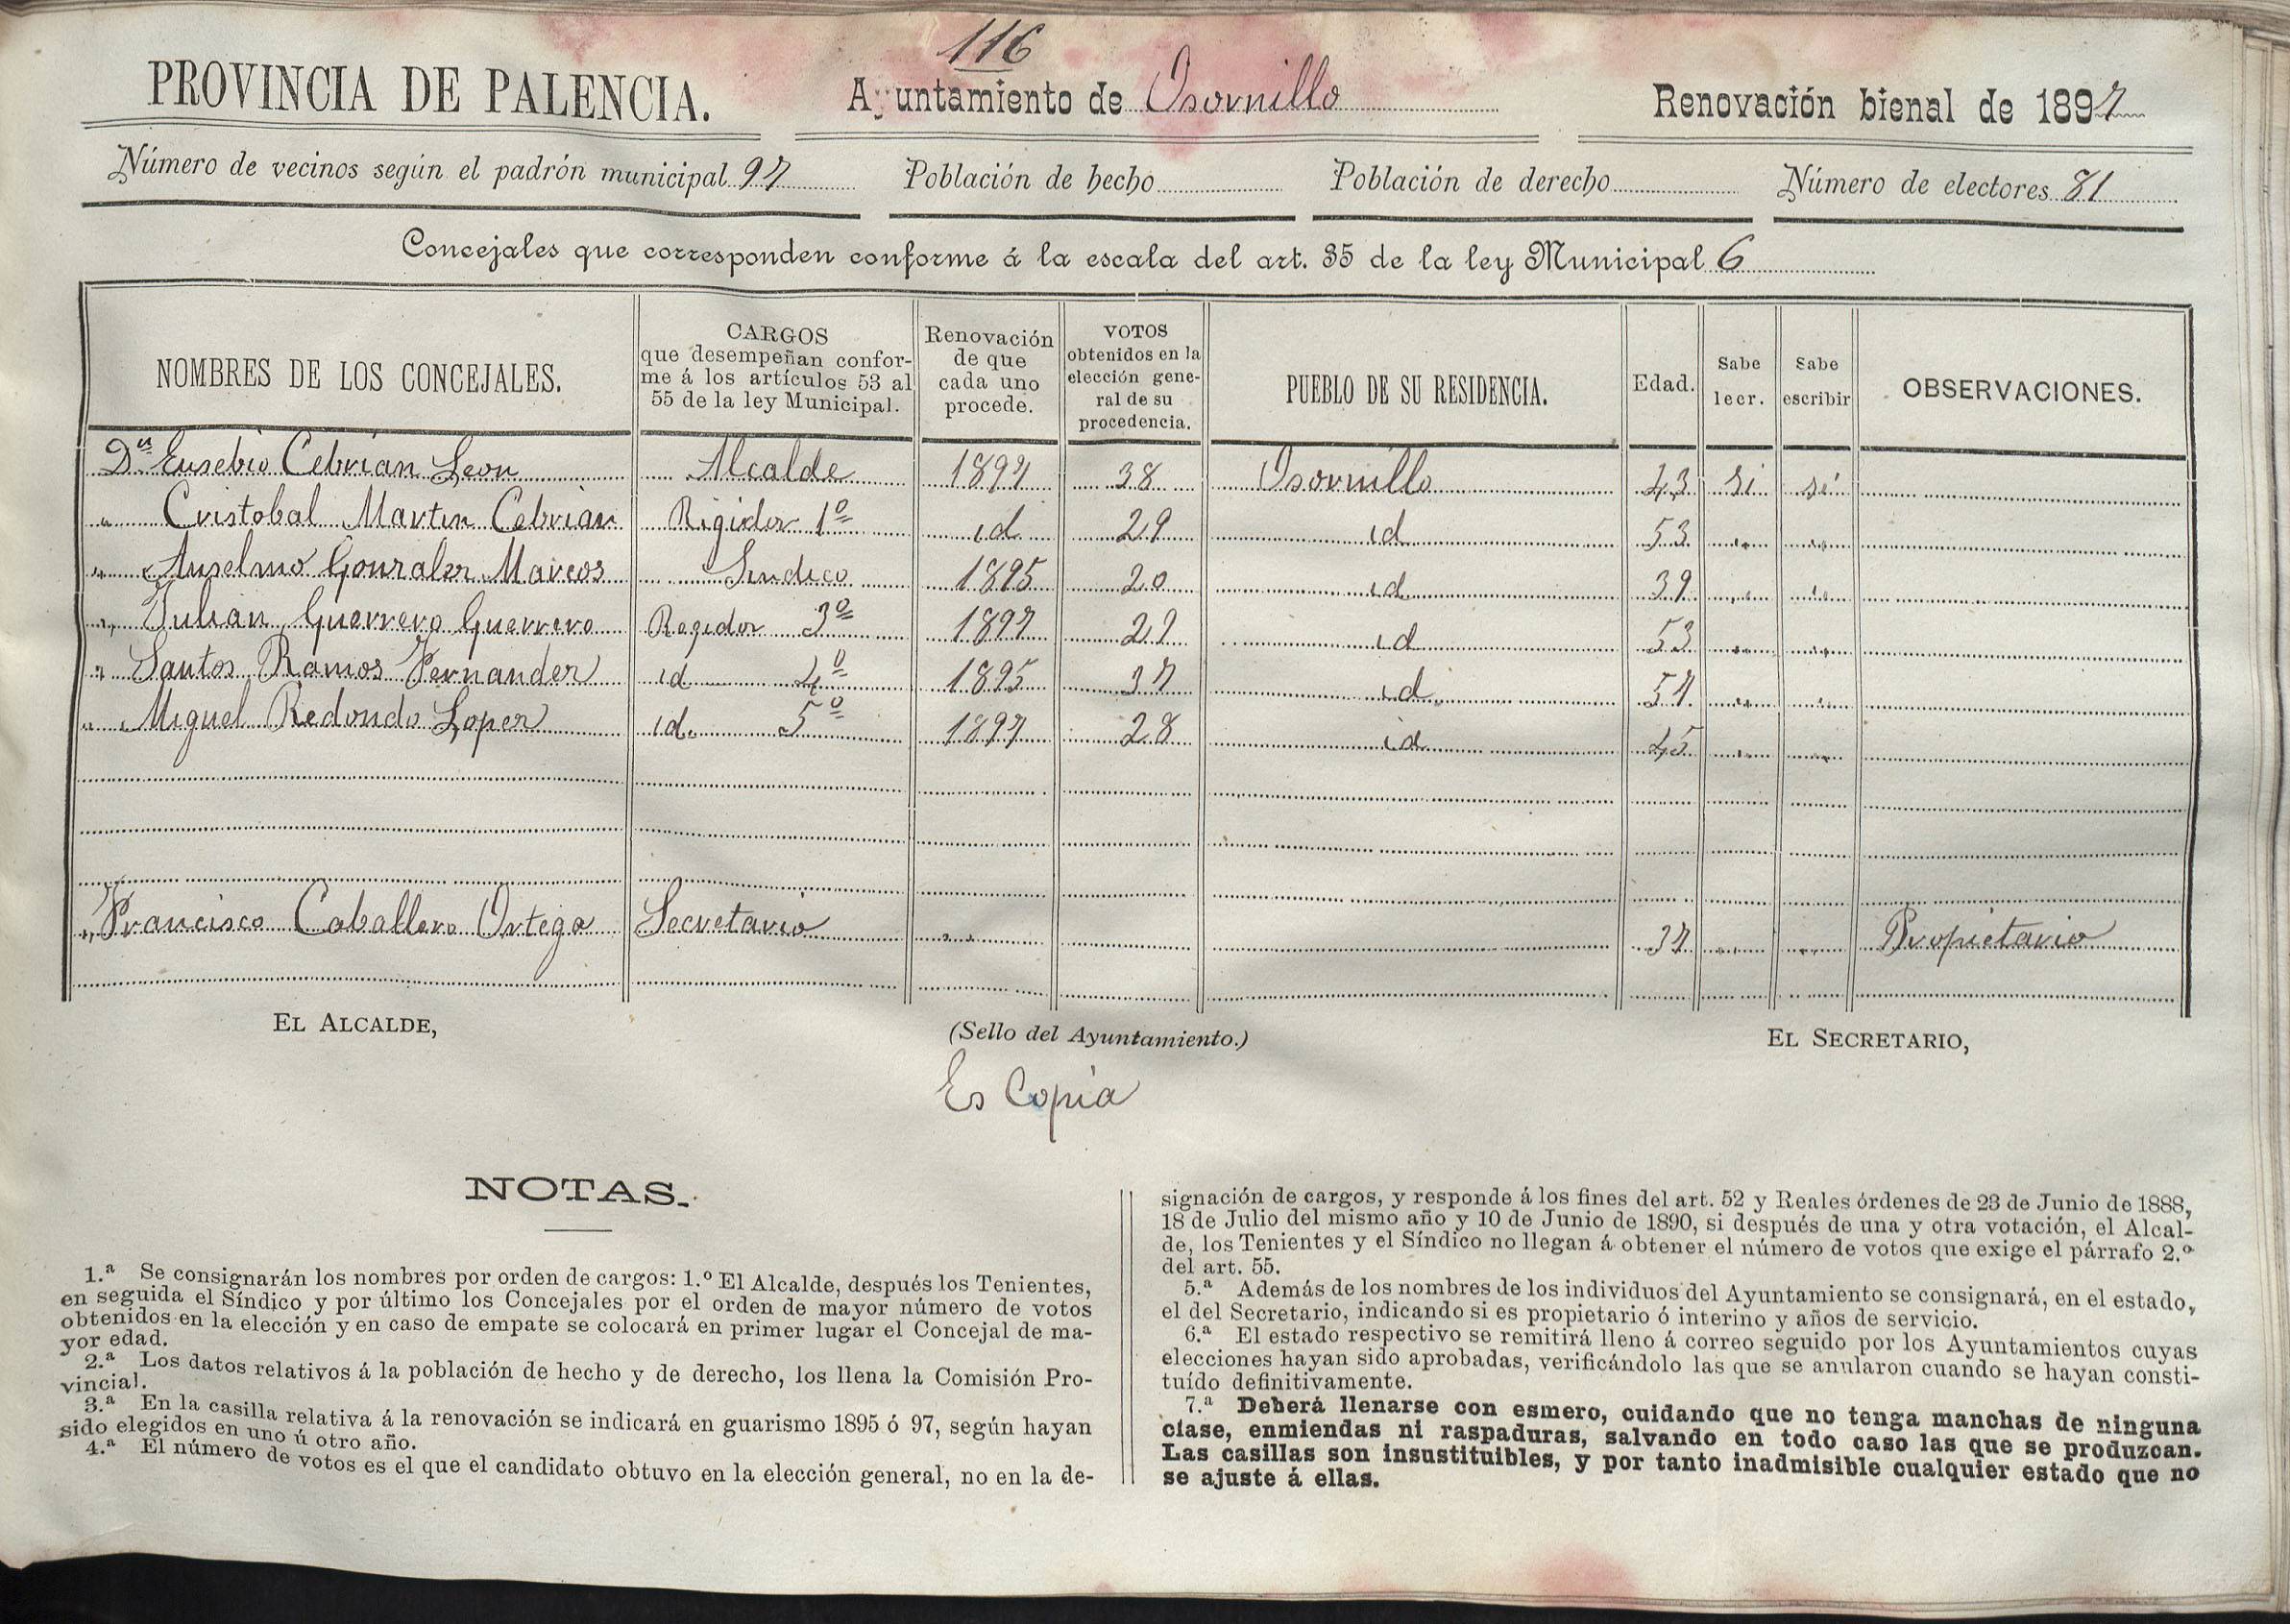 116
PROVINCIA DE PALENCIA. Ayuntamiento de Osornillo Renovación bienal de 1897
Número de vecinos según el padrón municipal 97 Población de hecho Población de derecho Número de electores 81
Concejales que corresponden conforme á la escala del art. 35 de la ley Municipal 6
NOMBRES DE LOS CONCEJALES. CARGOS que desempeñan confor- me á los artículos 53 al 55 de la ley Municipal. Renovación de que cada uno procede. VOTOS obtenidos en la elección gene- ral de su procedencia. PUEBLO DE SU RESIDENCIA. Edad. Sabe leer. Sabe escribir OBSERVACIONES.
Dn Eusebio Cebrian Leon Alcalde 1897 38 Osornillo 43 si si
" Cristobal Martin Cebrian Rigidor 1º id 29 id 53 " "
" Anselmo Gonzalez Marcos Sindico 1895 20 id 39 " "
" Julian Guerrero Guerrero Regidor 3º 1897 29 id 53 " "
" Santos Ramos Fernandez id 4º 1895 37 id 57 " "
" Miguel Redondo Lopez id. 5º 1897 28 id 45 " "
" Francisco Caballero Ortega Secretario " 37 " " Propietario
EL ALCALDE, (Sello del Ayuntamiento.) EL SECRETARIO,
Es Copia
NOTAS.
1.ª Se consignarán los nombres por orden de cargos: 1.º El Alcalde, después los Tenientes,
en seguida el Síndico y por último los Concejales por el orden de mayor número de votos
obtenidos en la elección y en caso de empate se colocará en primer lugar el Concejal de ma-
yor edad.
2.ª Los datos relativos á la población de hecho y de derecho, los llena la Comisión Pro-
vincial.
3.ª En la casilla relativa á la renovación se indicará en guarismo 1895 ó 97, según hayan
sido elegidos en uno ú otro año.
4.ª El número de votos es el que el candidato obtuvo en la elección general, no en la de-
signación de cargos, y responde á los fines del art. 52 y Reales órdenes de 23 de Junio de 1888,
18 de Julio del mismo año y 10 de Junio de 1890, si después de una y otra votación, el Alcal-
de, los Tenientes y el Síndico no llegan á obtener el número de votos que exige el párrafo 2.º
del art. 55.
5.ª Además de los nombres de los individuos del Ayuntamiento se consignará, en el estado,
el del Secretario, indicando si es propietario ó interino y años de servicio.
6.ª El estado respectivo se remitirá lleno á correo seguido por los Ayuntamientos cuyas
elecciones hayan sido aprobadas, verificándolo las que se anularon cuando se hayan consti-
tuído definitivamente.
7.ª Deberá llenarse con esmero, cuidando que no tenga manchas de ninguna
clase, enmiendas ni raspaduras, salvando en todo caso las que se produzcan.
Las casillas son insustituibles, y por tanto inadmisible cualquier estado que no
se ajuste á ellas.